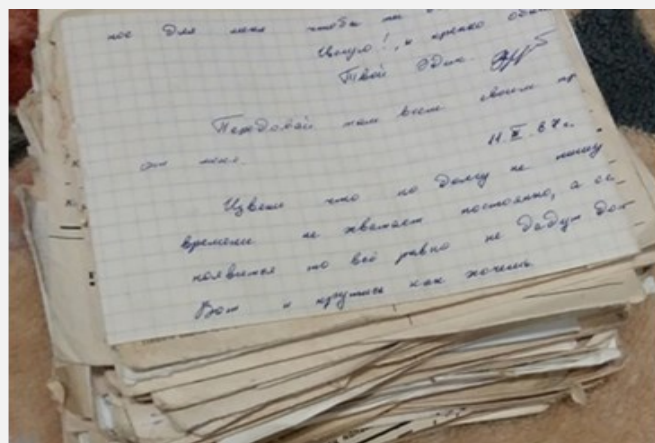 ное для меня чтобы ты
Целую!, и крепко обни
Твой Эдик.
Передавай там всем своим пр
от меня.
11. II. 87 г.
Извени что по долгу не пишу
времени не хватает постоянно, а ес_
появится то всё равно не дадут доп
Вот и крутись как хочешь.